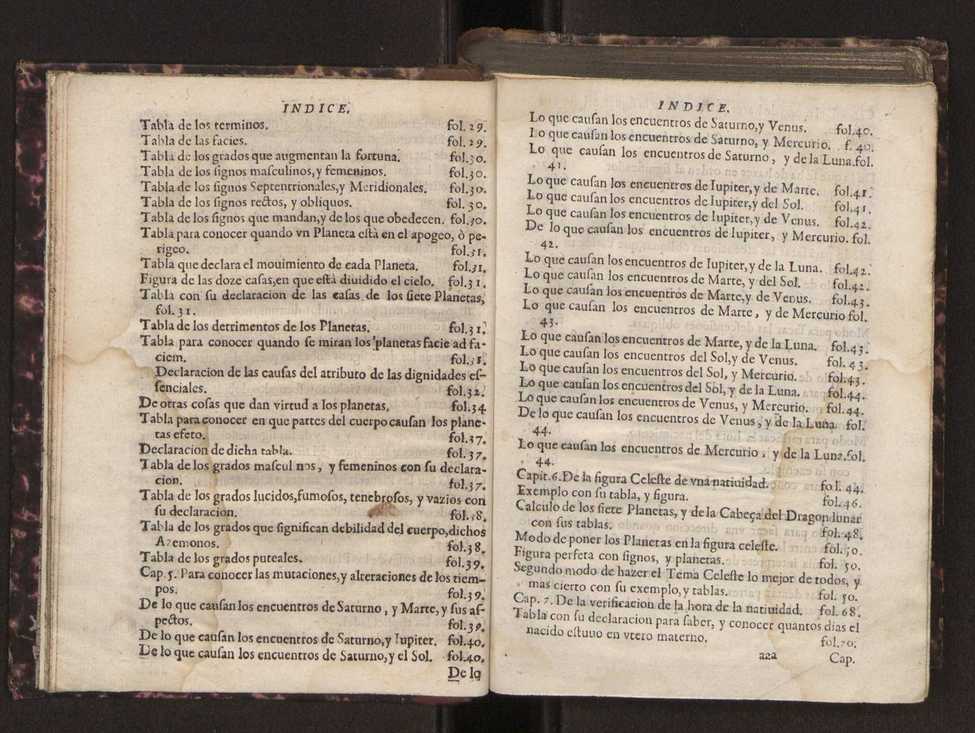 INDICE.
Tabla de los terminos. fol. 29.
Tabla de las facies. fol. 29.
Tabla de los grados que augmentan la fortuna. fol.30.
Tabla de los signos masculinos,y femeninos. fol.30.
Tabla de los signos Septentrionales,y Meridionales. fol.30.
Tabla de los signos rectos, y obliquos. fol. 30.
Tabla de los signos que mandan,y de los que obedecen. fol.30.
Tabla para conocer quando vn Planeta està en el apogeo, ò pe-
rigeo. fol.31.
Tabla que declara el mouimiento de cada Planeta. fol.31.
Figura de las doze casas,en que està diuidido el cielo. fol.31.
Tabla con su declaracion de las casas de los siete Planetas,
fol. 31.
Tabla de los detrimentos de los Planetas. fol.31.
Tabla para conocer quando se miran los planetas facie ad fa-
ciem. fol.31.
Declaracion de las causas del atributo de las dignidades es-
senciales. fol.32.
De otras cosas que dan virtud a los planetas. fol.34
Tabla para conocer en que partes del cuerpo causan los plane-
tas efeto. fol.37.
Declaracion de dicha tabla. fol.37.
Tabla de los grados mascul nos, y femeninos con su declara-
cion. fol.37.
Tabla de los grados lucidos,fumosos, tenebrosos, y vazios con
su declaracion. fol.38.
Tabla de los grados que significan debilidad del cuerpo,dichos
Azemonos. fol.38.
Tabla de los grados puteales. fol.39.
Cap. 5. Para conocer las mutaciones,y alteraciones de los tiem-
pos. fol.39.
De lo que causan los encuentros de Saturno, y Marte, y sus as-
pectos. fol.39.
De lo que causan los encuentros de Saturno,y Iupiter. fol.40.
De lo que causan los encuentros de Saturno,y el Sol. fol.40.
De lo
INDICE.
Lo que causan los encuentros de Saturno,y Venus. fol.40.
Lo que causan los encuentros de Saturno, y Mercurio. f. 40.
Lo que causan los encuentros de Saturno, y de la Luna.fol.
41.
Lo que causan los encuentros de Iupiter,y de Marte. fol.41.
Lo que causan los encuentros de Iupiter,y del Sol. fol.41.
Lo que causan los encuentros de Iupiter,y de Venus. fol.42.
De lo que causan los encuentros de Iupiter, y Mercurio. fol.
42.
Lo que causan los encuentros de Iupiter,y de la Luna. fol.42.
Lo que causan los encuentros de Marte, y del Sol. fol.42.
Lo que causan los encuentros de Marte,y de Venus. fol.43.
Lo que causan los encuentros de Marte, y de Mercurio fol.
43.
Lo que causan los encuentros de Marte, y de la Luna. fol.43.
Lo que causan los encuentros del Sol,y de Venus. fol. 43.
Lo que causan los encuentros del Sol, y Mercurio. fol.43.
Lo que causan los encuentros del Sol, y de la Luna. fol.44.
Lo que causan los encuentros de Venus, y Mercurio. fol.44.
De lo que causan los encuentros de Venus, y de la Luna. fol.
44.
Lo que causan los encuentros de Mercurio, y de la Luna.fol.
44.
Capit.6.De la figura Celeste de vna natiuidad. fol. 44.
Exemplo con su tabla, y figura. fol.46.
Calculo de los siete Planetas, y de la Cabeça del Dragon lunar
con sus tablas. fol.48.
Modo de poner los Planetas en la figura celeste. fol.50.
Figura perfeta con signos, y planetas. fol. 50.
Segundo modo de hazer el Tema Celeste lo mejor de todos, y
mas cierto con su exemplo,y tablas. fol. 50.
Cap. 7. De la verificacion de la hora de la natiuidad. fol. 68.
Tabla con su declaracion para saber, y conocer quantos dias el
nacido estuuo en vtero materno. fol.70.
aaa Cap.